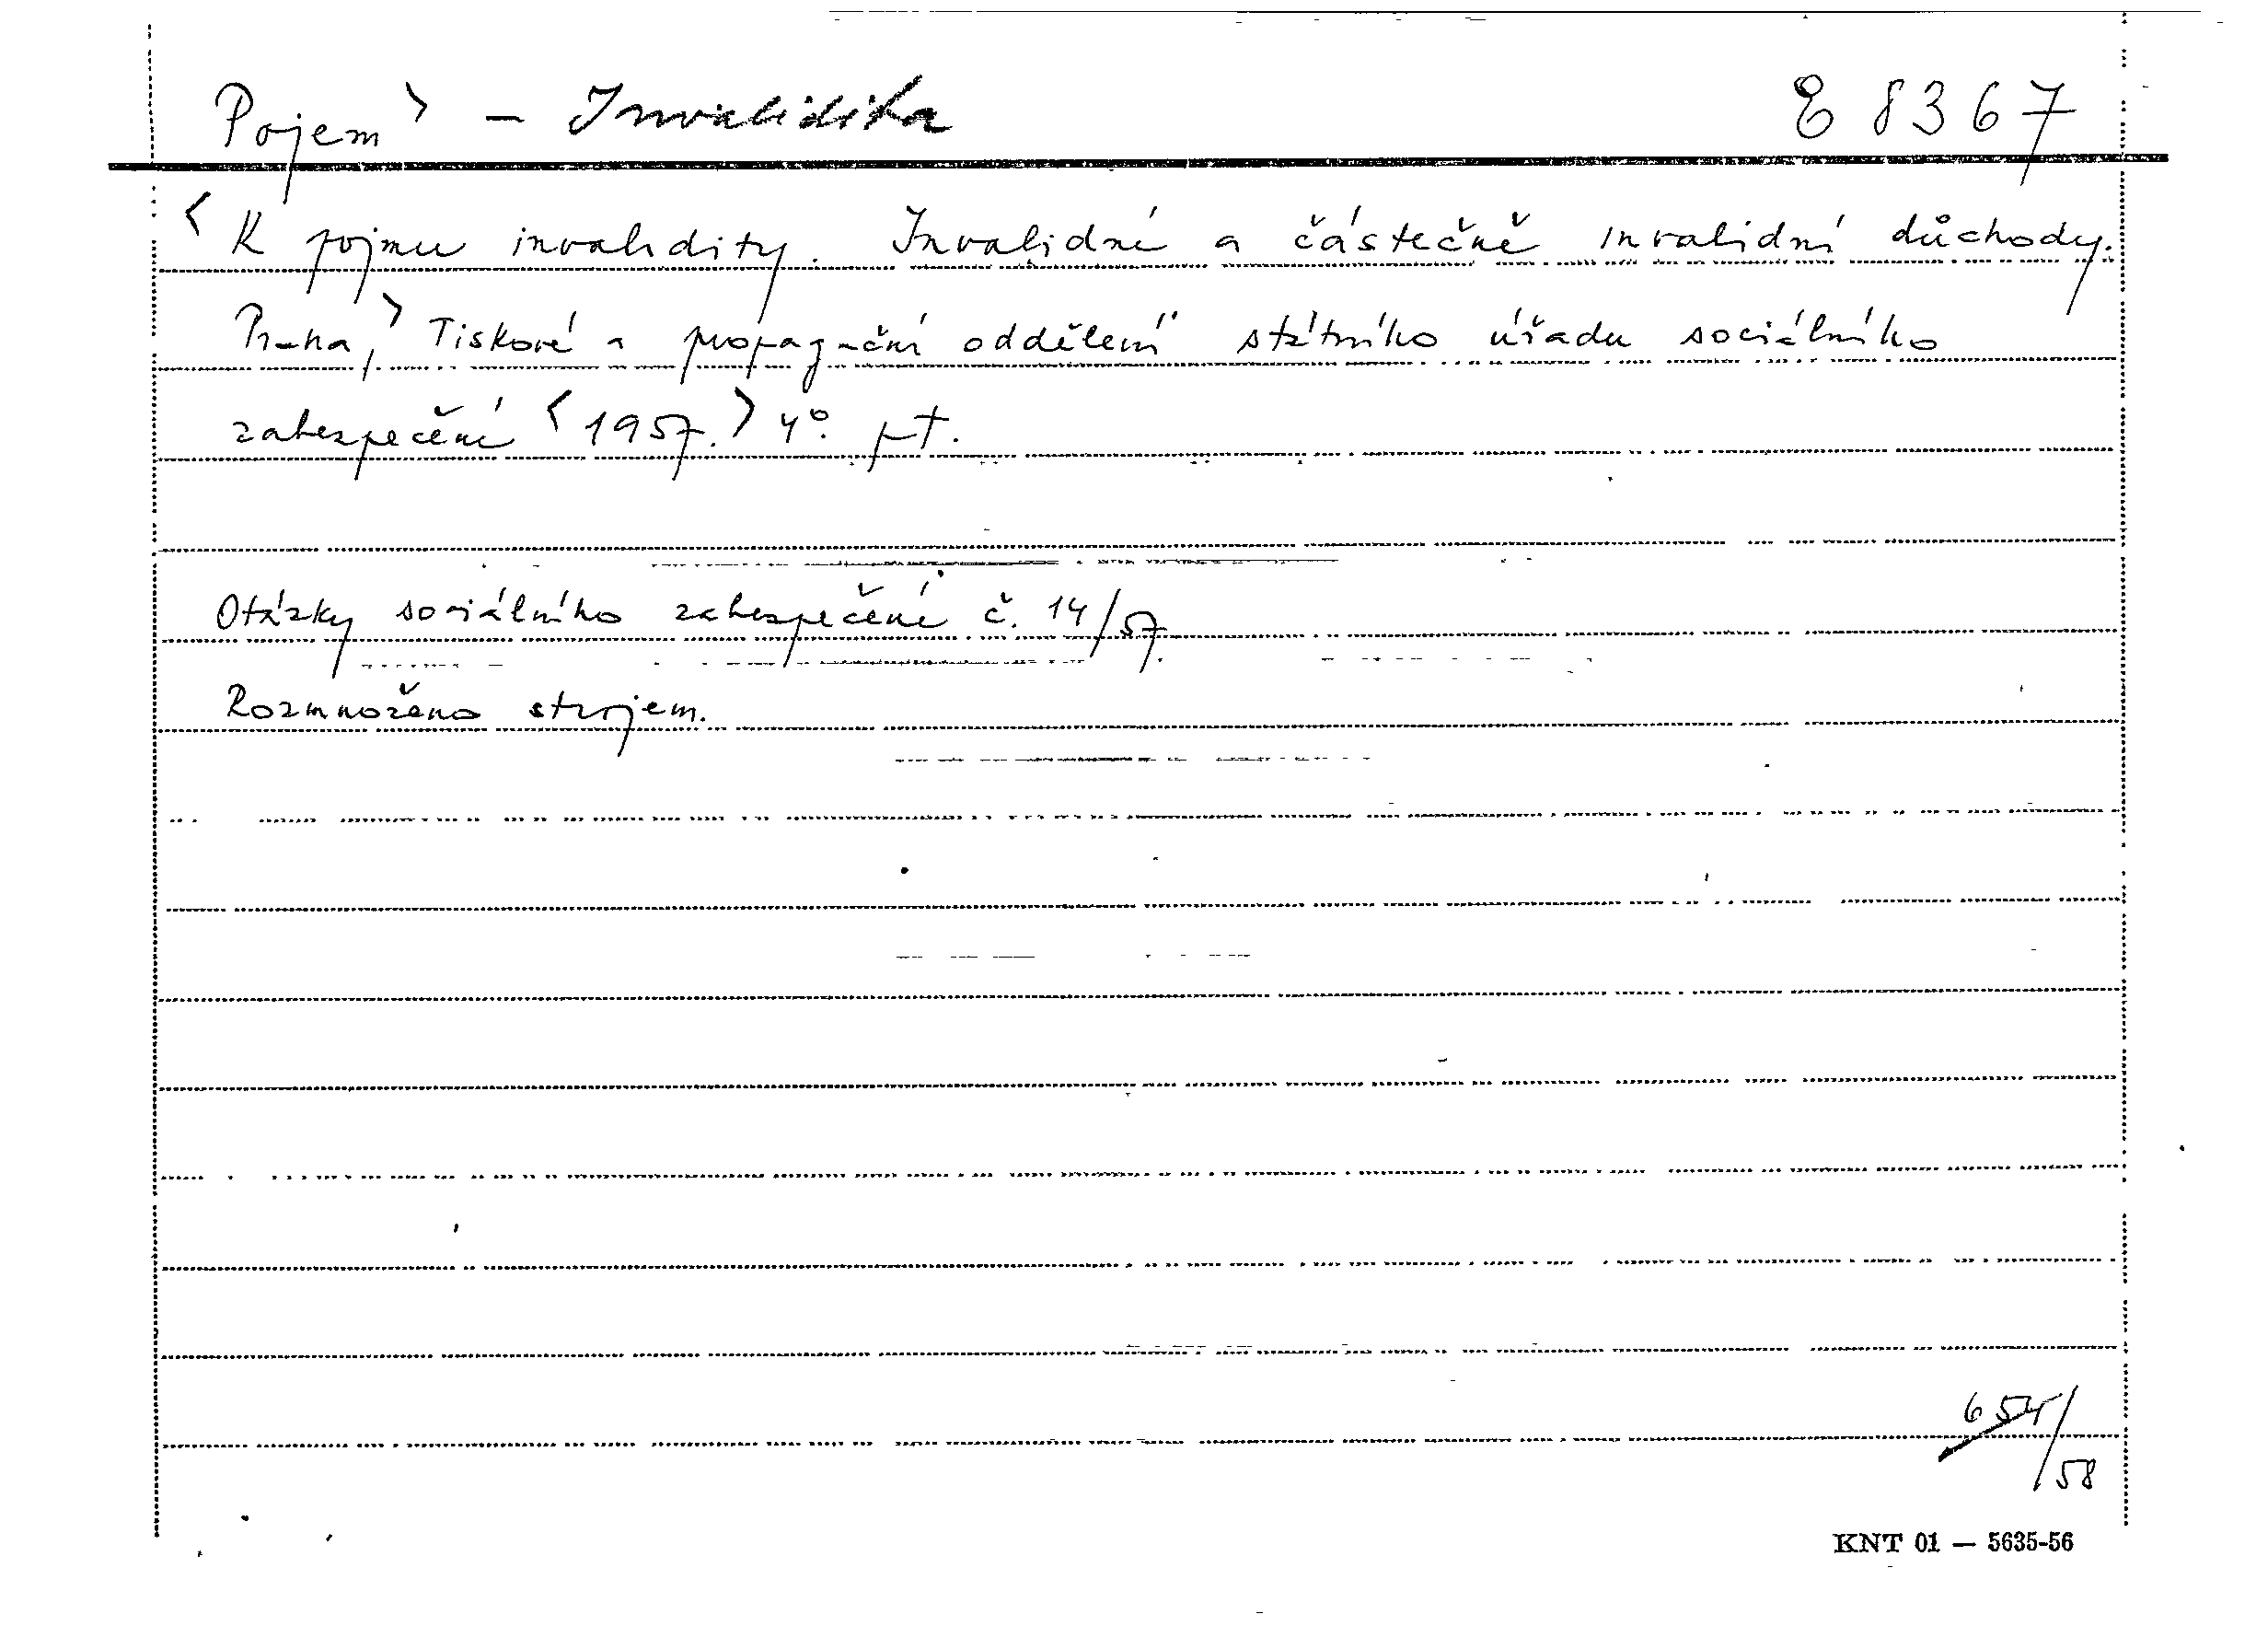 Pojem > - Invalidita E 8367
< K pojmu invalidity. Invalidní a částečně invalidní důchody.
Praha, > Tiskové a propagační oddělení státního úřadu sociálního
zabezpečení < 1957. > 4°. pt.
Otázky sociálního zabezpečení č. 14/57.
Rozmnoženo strojem.
654/58
KNT 01 — 5635-56